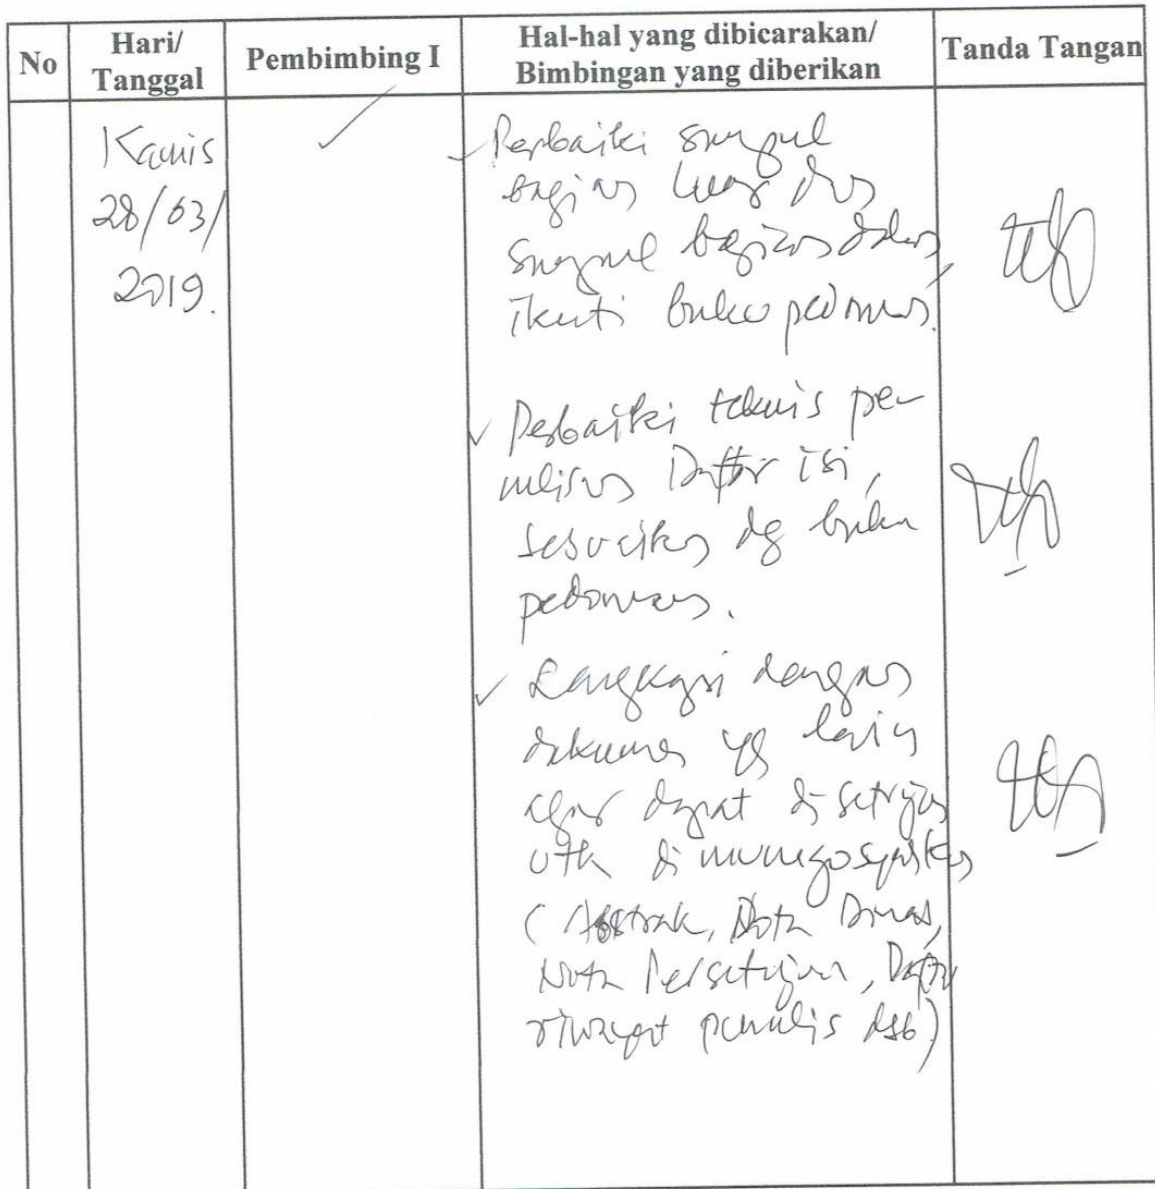 No
Hari/
Tanggal
Pembimbing I
Hal-hal yang dibicarakan/
Bimbingan yang diberikan
Tanda Tangan
Kamis
28/03/
2019.
Perbaiki sampul
bagian luar dan
sampul bagian dalam,
ikuti buku pedoman.
Perbaiki teknis pe-
nulisan Daftar isi,
sesuaikan dg buku
pedoman.
Lengkapi dengan
dokumen yg lain
agar dapat di setujui
utk di munaqosyahkan
(Abstrak, Nota Dinas,
Nota Persetujuan, Daftar
riwayat penulis dsb)